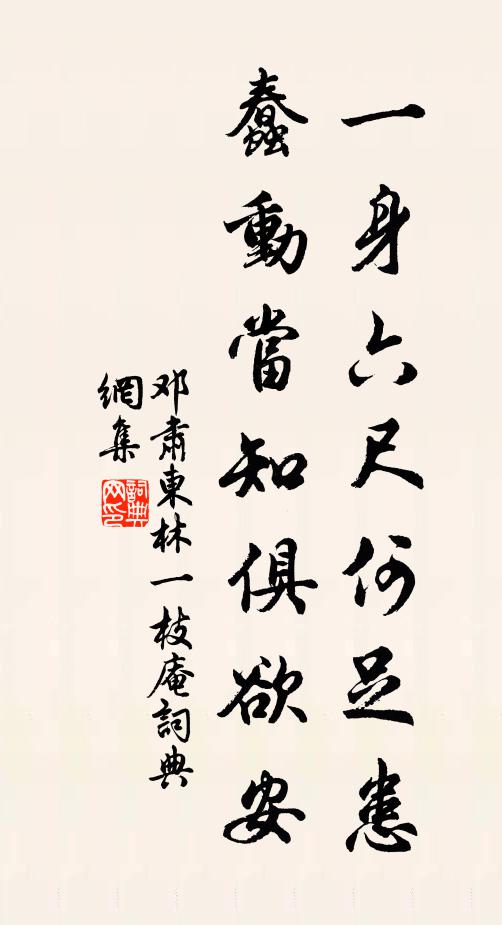 一身六尺何足患
蠢動當知俱欲安
邓肅東林一枝庵詞典
網集
詞典
网印